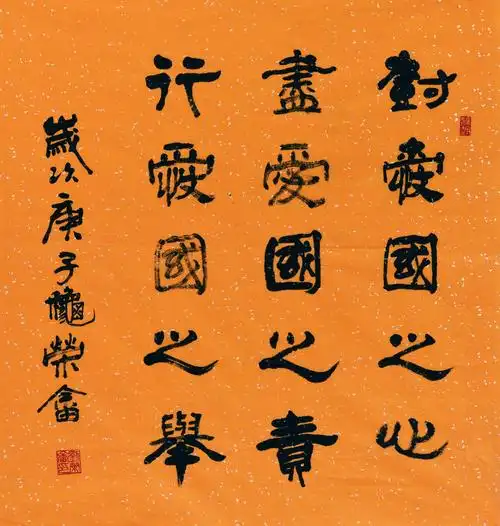 愛國之心
盡愛國之責
行愛國之舉
歲次庚子龝榮